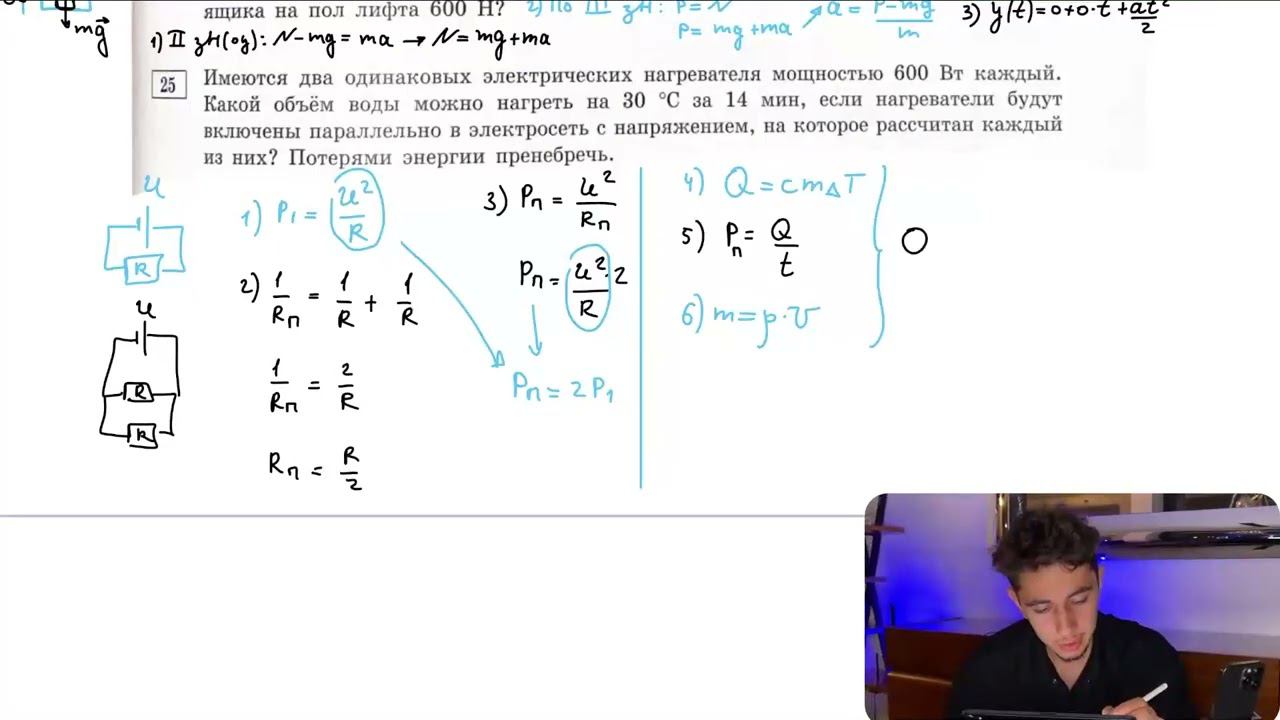 ящика на пол лифта 600 Н? 2) По III зН: P = N
P = mg + ma → a = P - mg / m
3) y(t) = 0 + 0·t + at²/2
mg
1) II зН(oy): N - mg = ma → N = mg + ma
25 Имеются два одинаковых электрических нагревателя мощностью 600 Вт каждый.
Какой объём воды можно нагреть на 30 °С за 14 мин, если нагреватели будут
включены параллельно в электросеть с напряжением, на которое рассчитан каждый
из них? Потерями энергии пренебречь.
U
R
U
R
R
1) P₁ = U²/R
2) 1/Rп = 1/R + 1/R
1/Rп = 2/R
Rп = R/2
3) Pп = U²/Rп
Pп = U²·2/R
Pп = 2P₁
4) Q = cmΔT
5) Pп = Q/t
6) m = ρ·V